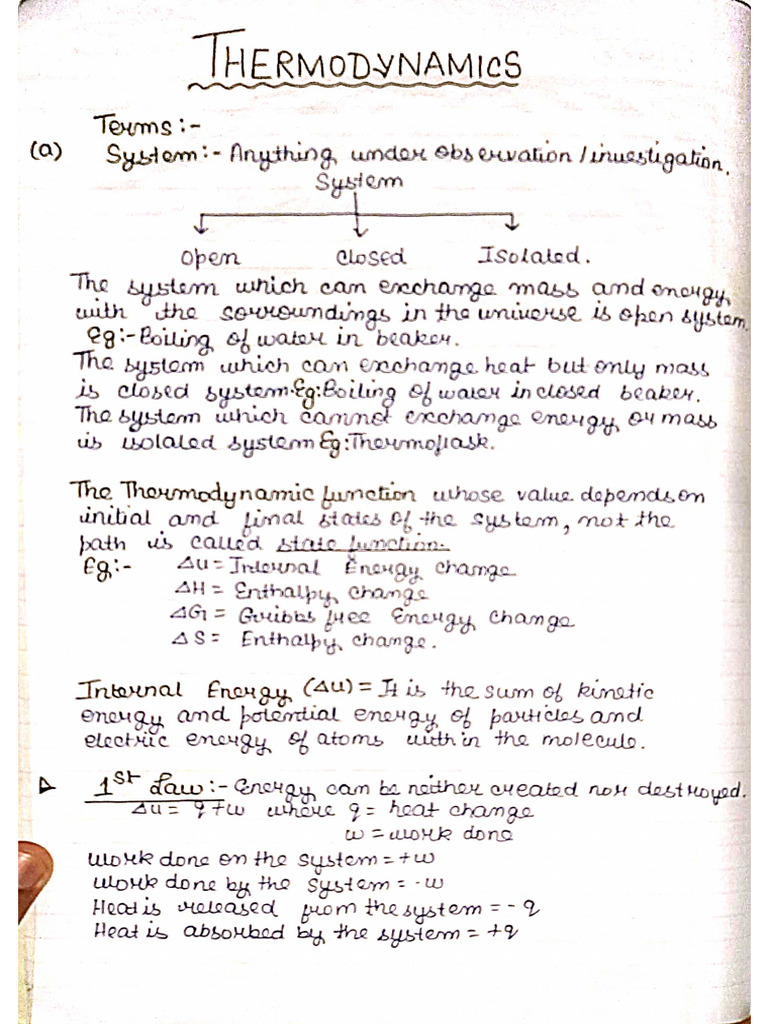 THERMODYNAMICS
Terms:-
(a) System:- Anything under observation/investigation.
System
Open Closed Isolated.
The system which can exchange mass and energy
with the sorroundings in the universe is open system.
Eg:- Boiling of water in beaker.
The system which can exchange heat but only mass
is closed system. Eg: Boiling of water in closed beaker.
The system which cannot exchange energy or mass
is isolated system Eg: Thermoflask.
The Thermodynamic function whose value depends on
initial and final states of the system, not the
path is called state function.
Eg:- ΔU = Internal Energy change
ΔH = Enthalpy change
ΔG = Gribbs free Energy Change
ΔS = Enthalpy change.
Internal Energy (ΔU) = It is the sum of kinetic
energy and potential energy of particles and
electric energy of atoms within the molecule.
▷ 1st Law:- Energy can be neither created nor destroyed.
ΔU = q+w where q = heat change
w = work done
Work done on the system = +w
Work done by the system = -w
Heat is released from the system = -q
Heat is absorbed by the system = +q